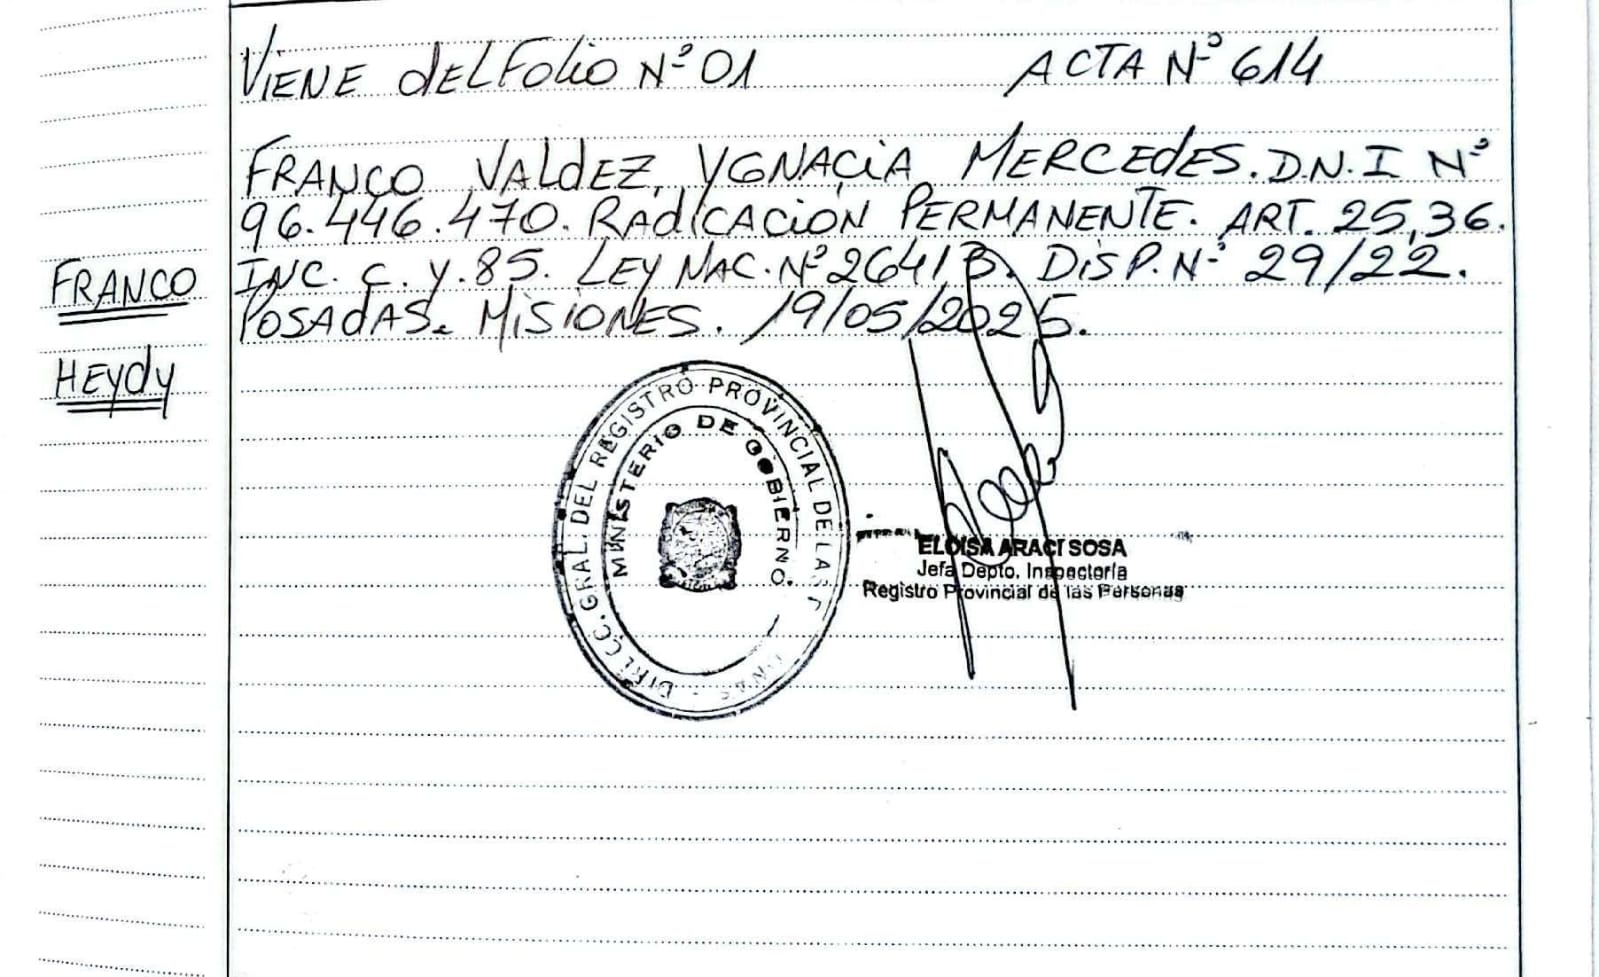 VIENE dEL FOLIO Nº 01 ACTA Nº 614
FRANCO VALdEZ, YGNACIA MERCEdES. D.N.I Nº
96.446.470. RAdICACION PERMANENTE. ART. 25,36.
INC. C. Y. 85. LEY NAC. Nº 26413. DISP. Nº 29/22.
POSAdAS. MISIONES. 19/05/2025.
FRANCO
HEYdY
DIRECC. GRAL. DEL REGISTRO PROVINCIAL DE LAS
MINISTERIO DE GOBIERNO
ELOISA ARACI SOSA
Jefa Depto. Inspectoría
Registro Provincial de las Personas